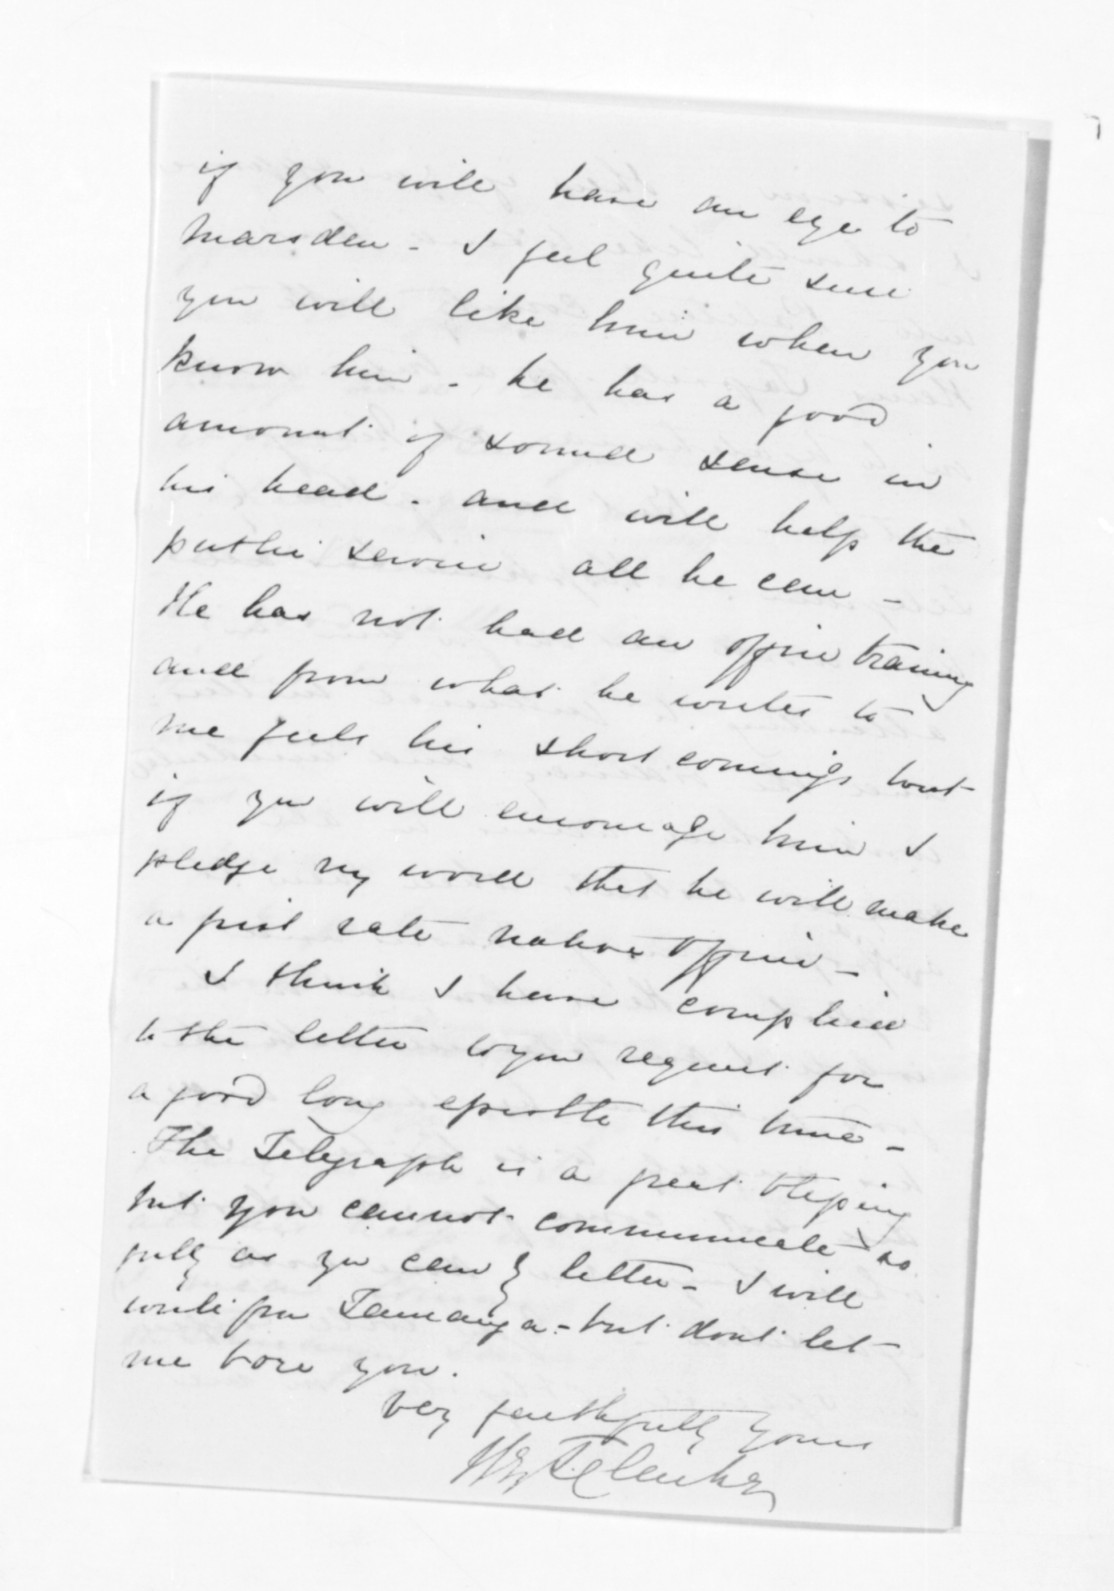 if you will have an eye to
Marsden - I feel quite sure
you will like him when you
know him - he has a good
amount of sound sense in
his head - and will help the
public service all he can -
He has not had an office training
and from what he writes to
me feels his short comings but
if you will encourage him I
pledge my word that he will make
a first rate native officer -
I think I have complied
to the letter to your request for
a good long epistle this time -
The Telegraph is a great blessing
but you cannot communicate so
fully as you can by letter - I will
write from Tauranga - but dont let
me bore you.
Very faithfully yours
H T Clarke